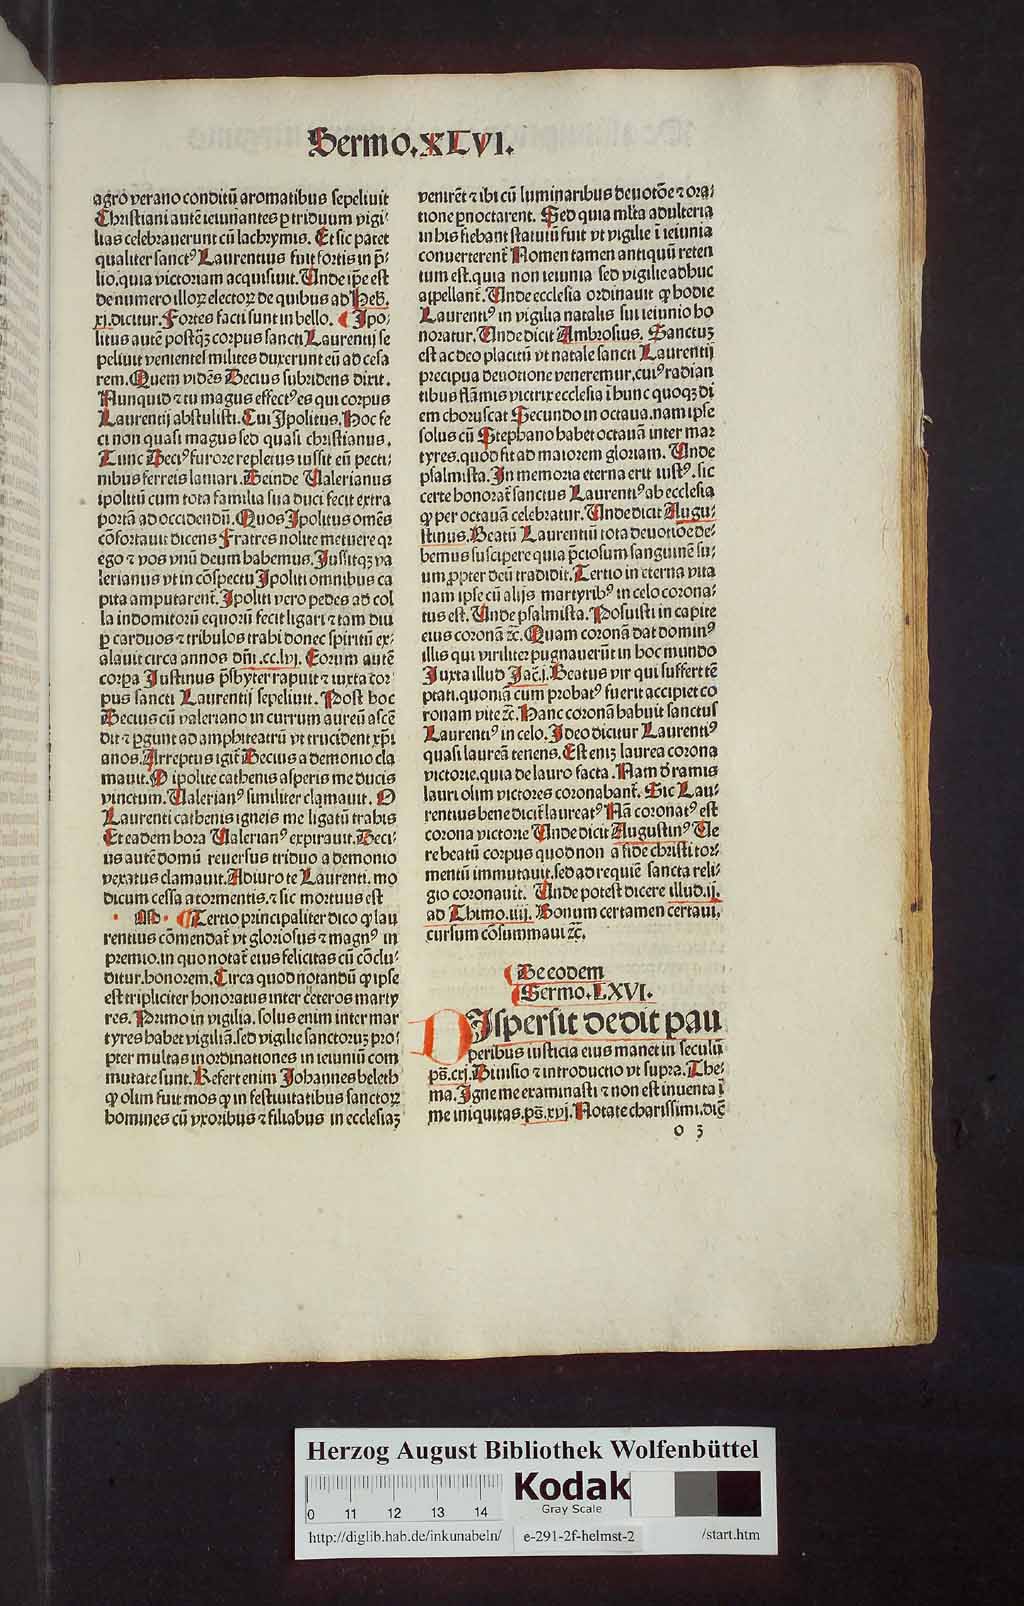 Sermo.XLVI.
agro verano conditū aromatibus sepeliuit
Christiani autē ieiunantes ꝑ triduum vigi⸗
lias celebrauerunt cū lachrymis. Et sic patet
qualiter sanctꝰ Laurentius fuit fortis in p̄⸗
lio. quia victoriam acquisiuit. Unde ip̄e est
de numero illoꝝ electoꝝ de quibus ad Heb̄.
xj. dicitur. Fortes facti sunt in bello. ¶ Ipo⸗
litus autē postqꝫ corpus sancti Laurentij se
peliuit venientes milites duxerunt eū ad cesa
rem. Quem vidēs Decius subridens dixit.
Nunquid ⁊ tu magus effectꝰ es qui corpus
Laurentij abstulisti. Cui Ipolitus. Hoc fe
ci non quasi magus sed quasi christianus.
Tunc Deciꝰ furore repletus iussit eū pecti⸗
nibus ferreis laniari. Deinde Ualerianus
ipolitū cum tota familia sua duci fecit extra
portā ad occidendū. Quos Ipolitus omēs
cōfortauit dicens Fratres nolite metuere qꝛ
ego ⁊ vos vnū deum habemus. Iussitqꝫ va
lerianus vt in cōspectu Ipoliti omnibus ca
pita amputarent̄. Ipoliti vero pedes ad col
la indomitorū equorū fecit ligari ⁊ tam diu
ꝑ carduos ⁊ tribulos trahi donec spiritū ex⸗
alauit circa annos dn̄i .cc.lvj. Eorum autē
corpa Iustinus p̄sbyter rapuit ⁊ iuxta cor⸗
pus sancti Laurentij sepeliuit. Post hoc
Decius cū valeriano in currum aureū ascē
dit ⁊ ꝑgunt ad amphiteatrū vt trucident xp̄i
anos. Arreptus igit̄ Decius a demonio cla
mauit. O ipolite cathenis asperis me ducis
vinctum. Ualerianꝰ similiter clamauit. O
Laurenti cathenis igneis me ligatū trahis
Et eadem hora Ualerianꝰ expirauit. Deci⸗
us autē domū reuersus triduo a demonio
vexatus clamauit. Adiuro te Laurenti. mo
dicum cessa a tormentis. ⁊ sic mortuus est
¶ Tertio principaliter dico ꝙ lau
rentius cōmendat̄ vt gloriosus ⁊ magnꝰ in
premio. in quo notat̄ eius felicitas cū cōclu⸗
ditur. honorem. Circa quod notandū ꝙ ipse
est tripliciter honoratus inter ceteros marty
res. Primo in vigilia. solus enim inter mar
tyres habet vigiliā. sed vigilie sanctoruꝫ pro⸗
pter multas inordinationes in ieiuniū com
mutate sunt. Refert enim Johannes beleth
ꝙ olim fuit mos ꝙ in festiuitatibus sanctoꝝ
homines cū vxoribus ⁊ filiabus in ecclesiaꝫ
venirēt ⁊ ibi cū luminaribus deuotōe ⁊ ora⸗
tione ꝑnoctarent. Sed quia ml̄ta adulteria
in his fiebant statutū fuit vt vigilie ī ieiunia
conuerterent̄ Nomen tamen antiquū reten
tum est. quia non ieiunia sed vigilie adhuc
appellant̄. Unde ecclesia ordinauit ꝙ hodie
Laurentiꝰ in vigilia natalis sui ieiunio ho
noratur. Unde dicit Ambrosius. Sanctuꝫ
est ac deo placitū vt natale sancti Laurentij
precipua deuotione veneremur. cuiꝰ radian
tibus flāmis victrix ecclesia ī hunc quoqꝫ di
em choruscat Secundo in octaua. nam ipse
solus cū Stephano habet octauā inter mar
tyres. quod fit ad maiorem gloriam. Unde
psalmista. In memoria eterna erit iustꝰ. sic
certe honorat̄ sanctus Laurentiꝰ ab ecclesia
ꝙ per octauā celebratur. Unde dicit Augu⸗
stinus. Beatū Laurentiū tota deuotiōe de⸗
bemus suscipere quia p̄ciosum sanguinē su⸗
um ꝓpter deū tradidit. Tertio in eterna vita
nam ipse cū alijs martyribꝰ in celo corona⸗
tus est. Unde psalmista. Posuisti in capite
eius coronā ⁊c̄. Quam coronā dat dominꝰ
illis qui viriliter pugnauerūt in hoc mundo
Iuxta illud Jac̄.j. Beatus vir qui suffert tē
ptati. quoniā cum probatꝰ fuerit accipiet co
ronam vite ⁊c̄. Hanc coronā habuit sanctus
Laurentiꝰ in celo. Ideo dicitur Laurentiꝰ
quasi laureā tenens. Est eniꝫ laurea corona
victorie. quia de lauro facta. Nam d̄ ramis
lauri olim victores coronabant̄. Sic Lau⸗
rentius bene dicit̄ laureatꝰ Nā coronatꝰ est
corona victorie Unde dicit Augustinꝰ Ue
re beatū corpus quod non a fide christi tor⸗
mentū immutauit. sed ad requiē sancta reli⸗
gio coronauit. Unde potest dicere illud .ij.
ad Thimo.iiij. Bonum certamen certaui.
cursum cōsummaui ⁊c̄.
¶ De eodem
¶ Sermo.LXVI.
DIspersit dedit pau
peribus iusticia eius manet in seculū
ps̄.cxj. Diuisio ⁊ introductio vt supra. The⸗
ma. Igne me examinasti ⁊ non est inuenta ī
me iniquitas. ps̄.xvj. Notate charissimi. diē
o 3
Herzog August Bibliothek Wolfenbüttel
0 11 12 13 14
Kodak
Gray Scale
http://diglib.hab.de/inkunabeln/ e-291-2f-helmst-2 /start.htm